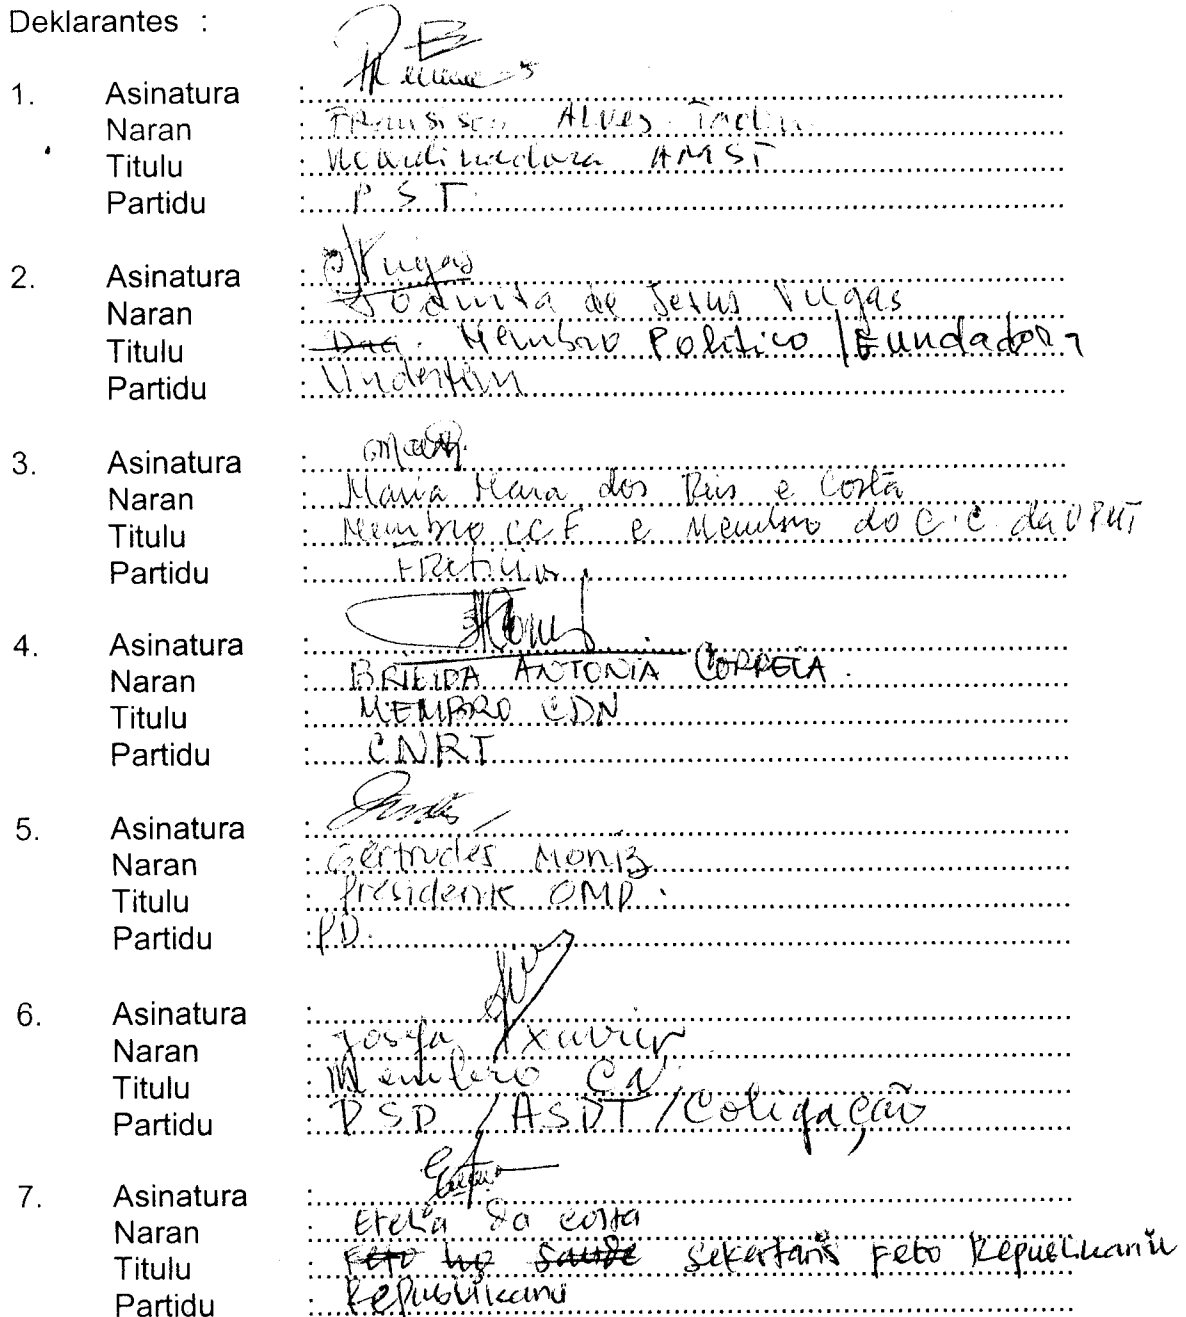 Deklarantes :
1. Asinatura :
Naran : Fransisca Alves
Titulu : AMST
Partidu : P S T
2. Asinatura :
Naran : de Jesus Vugas
Titulu : Membro Politico / Fundadora
Partidu : Undertim
3. Asinatura :
Naran : Maria Maia dos Reis e Costa
Titulu : Membro CCF e Membro do C.C. da OPMT
Partidu : Fretilin
4. Asinatura :
Naran : BRIGIDA ANTONIA CORREIA
Titulu : MEMBRO CDN
Partidu : CNRT
5. Asinatura :
Naran : Gertrudes Moniz
Titulu : Presidente OMD.
Partidu : PD.
6. Asinatura :
Naran : Josefa Xavier
Titulu : Membro CN
Partidu : PSD / ASDT / Coligação
7. Asinatura :
Naran : Etelia da Costa
Titulu : Feto Saude Sekertaris Feto Republikanu
Partidu : Republikanu